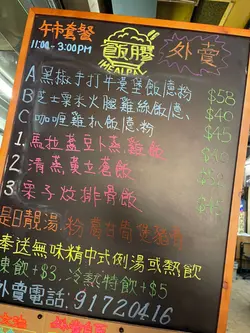 午市套餐
11:00 - 3:00PM
飯膠
HEALTHY
外賣
A 黑椒手打牛漢堡飯/意粉 $58
B 芝士粟米火腿雞絲飯/意 $40
C 咖喱雞扒飯/粉 $45
1. 馬拉盞豆卜蒸雞飯
2. 清蒸黃立鱠飯
3. 栗子炆排骨飯
是日靚湯: 粉葛
奉送無味精中式例湯或熱飲
凍飲+$3, 冷熱特飲+$5
外賣電話: 91720416